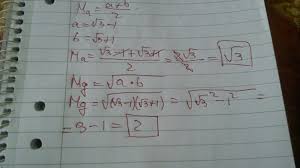 Ma = a+b / 2
a = √3 - 1
b = √3 + 1
Ma = √3 - 1 + √3 + 1 / 2 = 2√3 / 2 = √3
Mg = √a · b
Mg = √(√3 - 1)(√3 + 1) = √√3² - 1² =
- 1 = 2